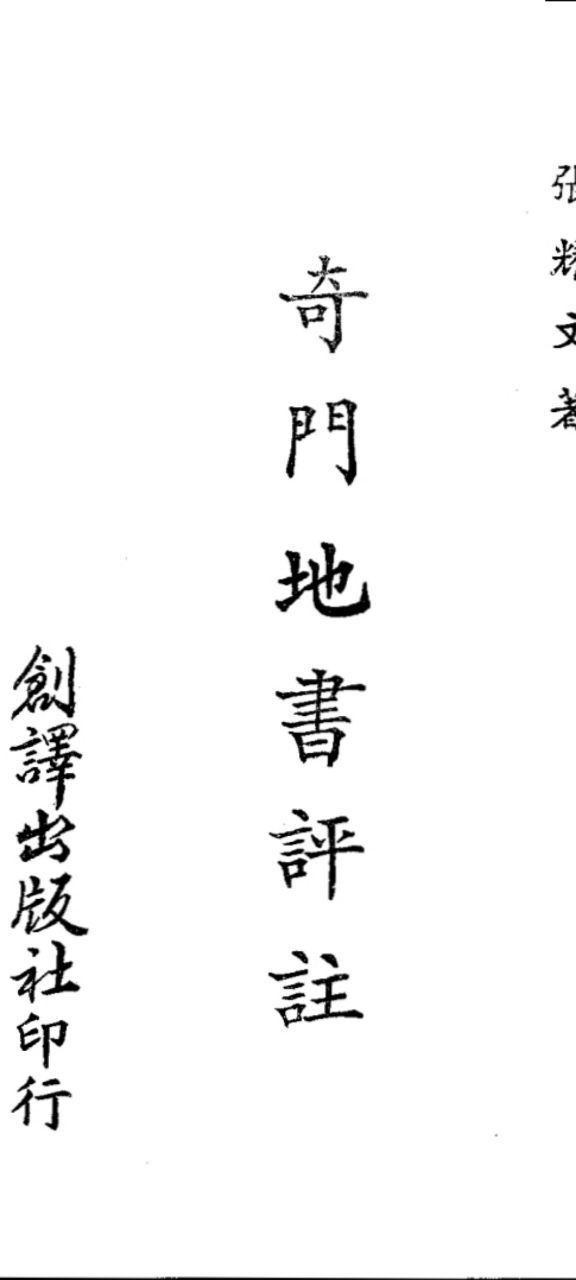 張耀文著
奇門地書評註
創譯出版社印行